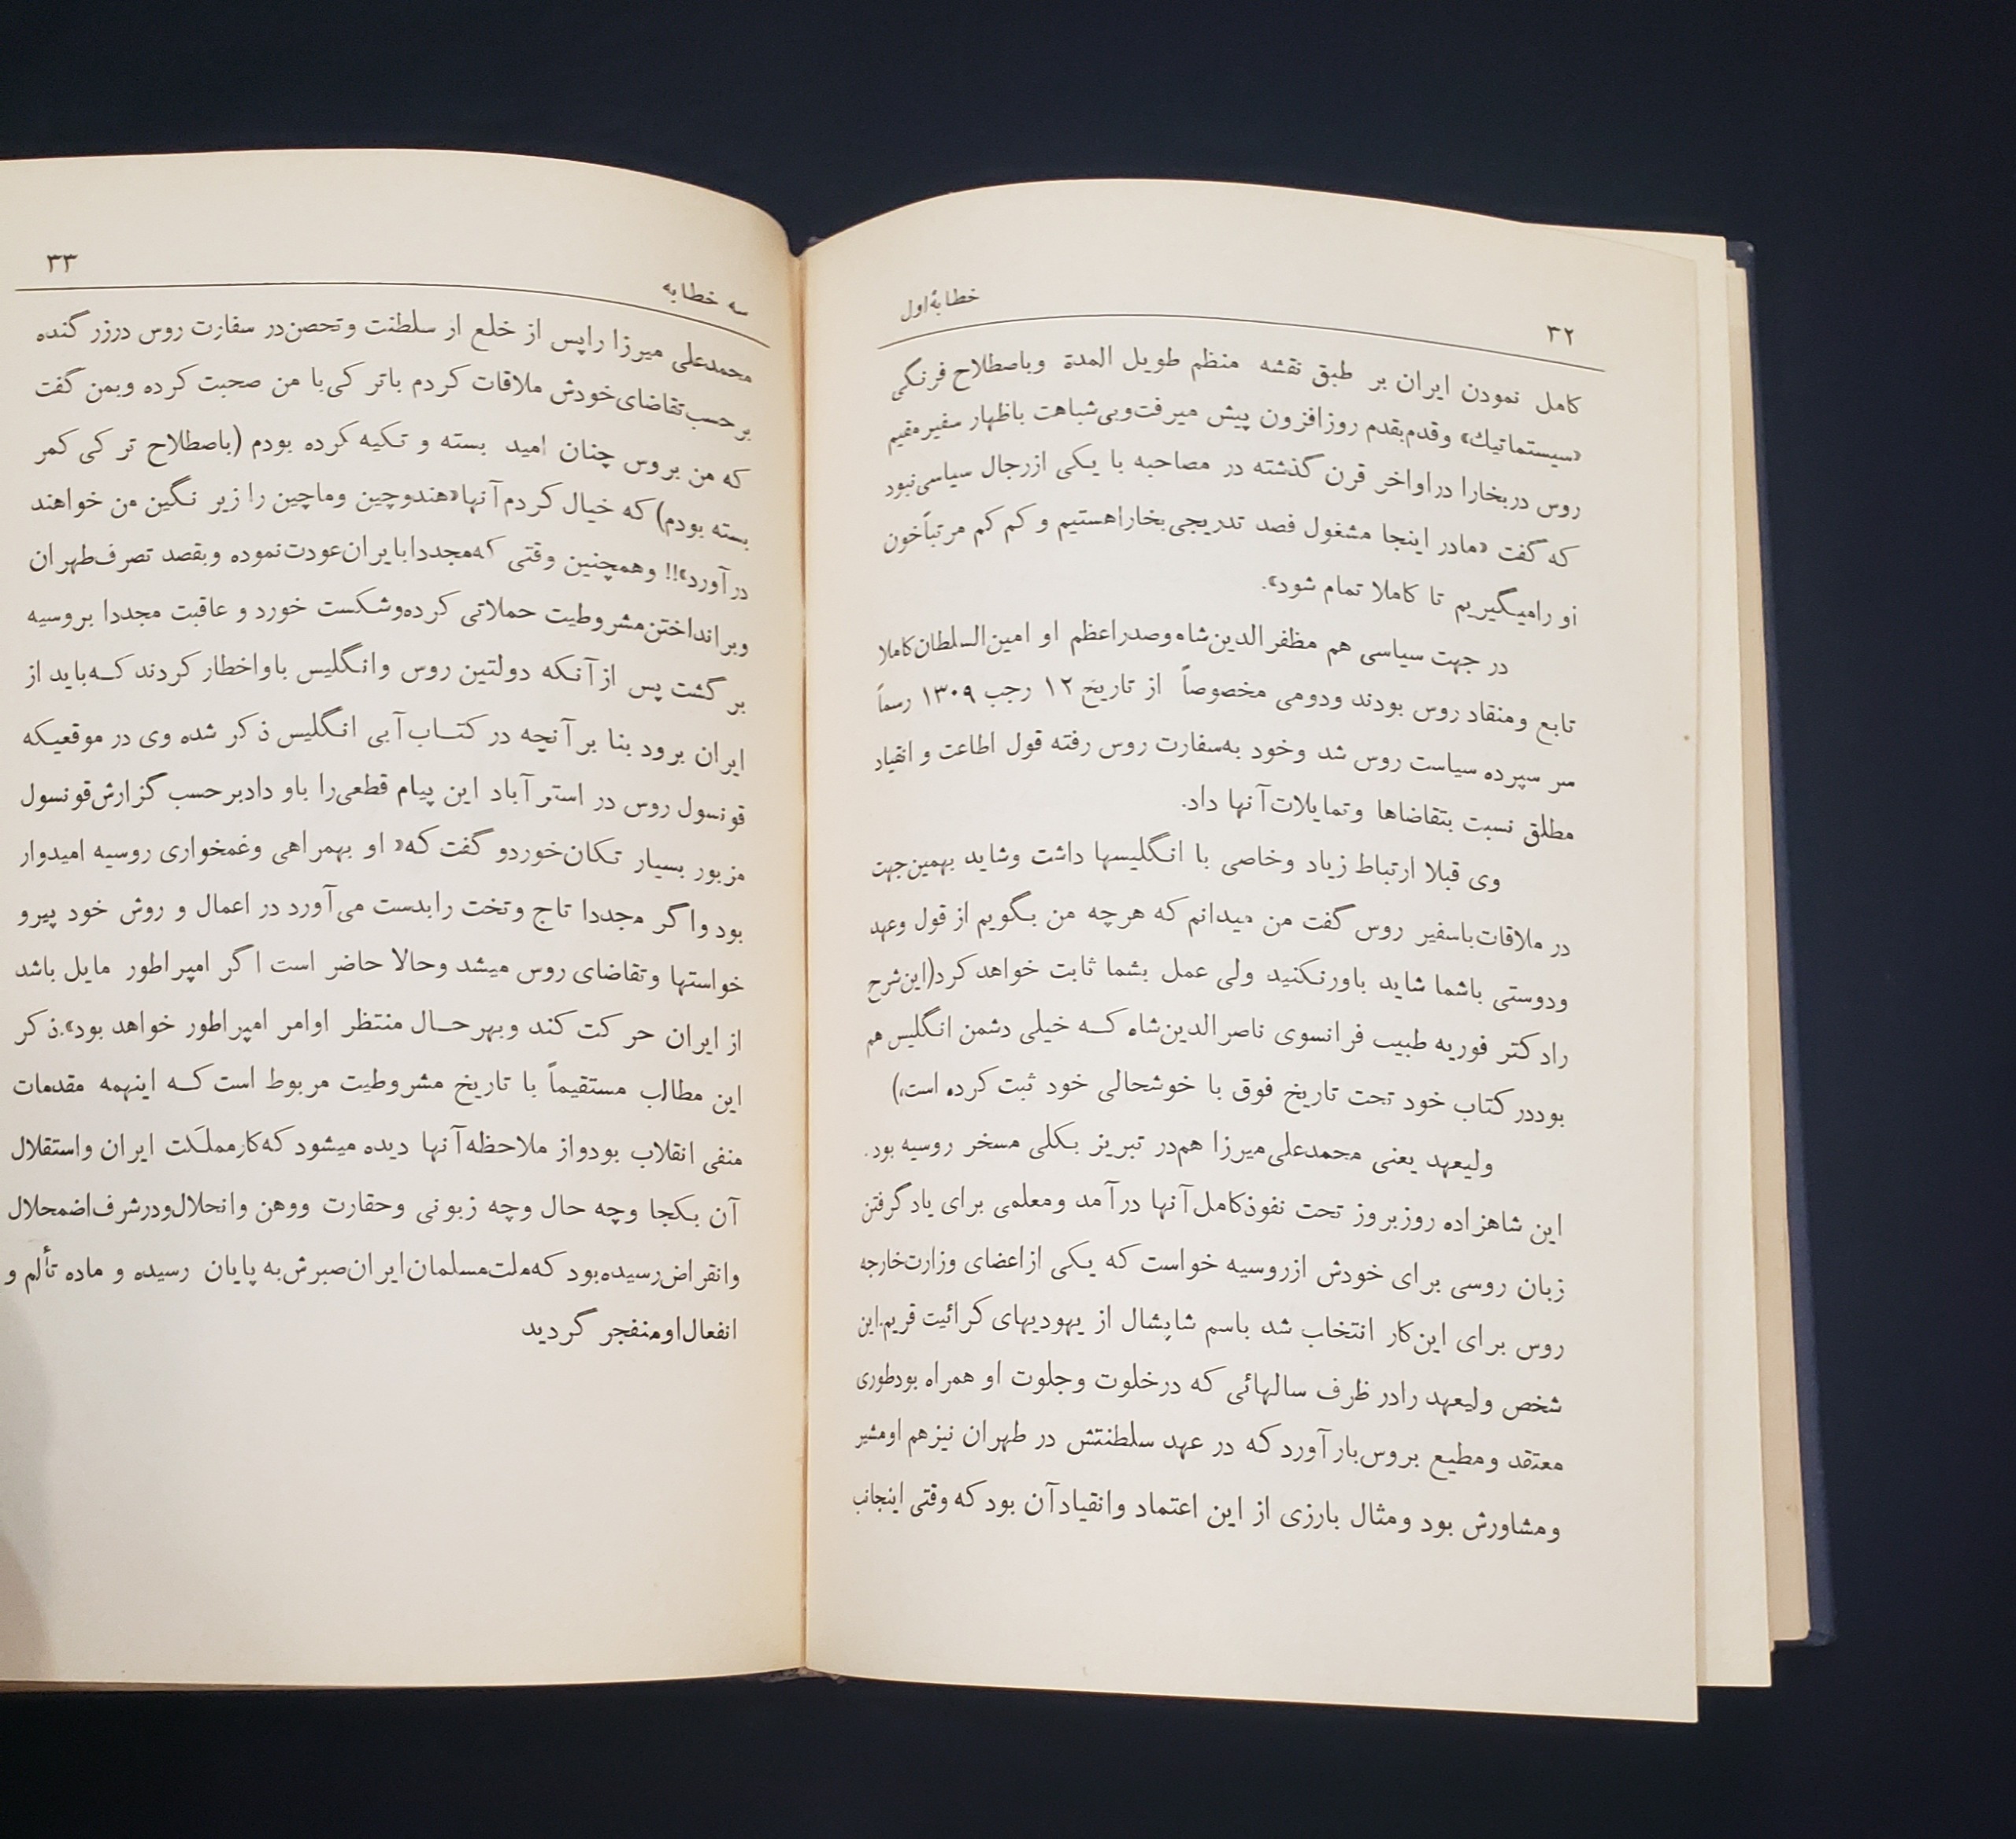 ۳۲
خطابهٔ اول
کامل نمودن ایران بر طبق نقشه منظم طویل المدة وباصطلاح فرنگی
«سیستماتیك» وقدم‌بقدم روزافزون پیش میرفت‌وبی‌شباهت باظهار سفیر مقیم
روس دربخارا دراواخر قرن گذشته در مصاحبه با یکی ازرجال سیاسی‌نبود
که گفت «مادر اینجا مشغول فصد تدریجی‌بخاراهستیم و کم کم مرتباًخون
او رامیگیریم تا کاملا تمام شود».
در جهت سیاسی هم مظفرالدین‌شاه‌وصدراعظم او امین‌السلطان‌کاملا
تابع ومنقاد روس بودند ودومی مخصوصاً از تاریخ ۱۲ رجب ۱۳۰۹ رسماً
سر سپرده سیاست روس شد وخود به‌سفارت روس رفته قول اطاعت و انقیاد
مطلق نسبت بتقاضاها وتمایلات‌آنها داد.
وی قبلا ارتباط زیاد وخاصی با انگلیسها داشت وشاید بهمین‌جهت
در ملاقات‌باسفیر روس گفت من میدانم که هرچه من بگویم از قول وعهد
ودوستی باشما شاید باورنکنید ولی عمل بشما ثابت خواهد کرد(این‌شرح
رادکتر فوریه طبیب فرانسوی ناصرالدین‌شاه که خیلی دشمن انگلیس هم
بوددر کتاب خود تحت تاریخ فوق با خوشحالی خود ثبت کرده است،)
ولیعهد یعنی محمدعلی‌میرزا هم‌در تبریز بکلی مسخر روسیه بود.
این شاهزاده روزبروز تحت نفوذکامل‌آنها درآمد ومعلمی برای یادگرفتن
زبان روسی برای خودش ازروسیه خواست که یکی ازاعضای وزارت‌خارجه
روس برای این‌کار انتخاب شد باسم شاپشال از یهودیهای کرائیت قریم.این
شخص ولیعهد رادر ظرف سالهائی که درخلوت وجلوت او همراه بودطوری
معتقد ومطیع بروس‌بارآورد که در عهد سلطنتش در طهران نیزهم اومشیر
ومشاورش بود ومثال بارزی از این اعتماد وانقیادآن بود که وقتی اینجانب
سه خطابه
۳۳
محمدعلی میرزا راپس از خلع از سلطنت وتحصن‌در سفارت روس درزرگنده
برحسب‌تقاضای‌خودش ملاقات کردم باترکی‌با من صحبت کرده وبمن گفت
که من بروس چنان امید بسته و تکیه کرده بودم (باصطلاح ترکی کمر
بسته بودم) که خیال کردم‌آنها«هندوچین وماچین را زیر نگین من خواهند
درآورد»!! وهمچنین وقتی که‌مجددابایران‌عودت‌نموده وبقصد تصرف‌طهران
وبرانداختن‌مشروطیت حملاتی کرده‌وشکست خورد و عاقبت مجددا بروسیه
برگشت پس ازآنکه دولتین روس وانگلیس باواخطارکردند که‌باید از
ایران برود بنا برآنچه در کتاب آبی انگلیس ذکر شده وی در موقعیکه
قونسول روس در استرآباد این پیام قطعی‌را باو دادبرحسب گزارش‌قونسول
مزبور بسیار تکان‌خوردو گفت که« او بهمراهی وغمخواری روسیه امیدوار
بود واگر مجددا تاج وتخت رابدست می‌آورد در اعمال و روش خود پیرو
خواستها وتقاضای روس میشد وحالا حاضر است اگر امپراطور مایل باشد
از ایران حرکت کند وبهرحال منتظر اوامر امپراطور خواهد بود».ذکر
این مطالب مستقیماً با تاریخ مشروطیت مربوط است که اینهمه مقدمات
منفی انقلاب بودواز ملاحظه‌آنها دیده میشود که‌کارمملکت ایران واستقلال
آن بکجا وچه حال وچه زبونی وحقارت ووهن وانحلال‌ودرشرف‌اضمحلال
وانقراض‌رسیده‌بود که‌ملت‌مسلمان‌ایران‌صبرش‌به پایان رسیده و ماده تألم و
انفعال‌اومنفجر گردید